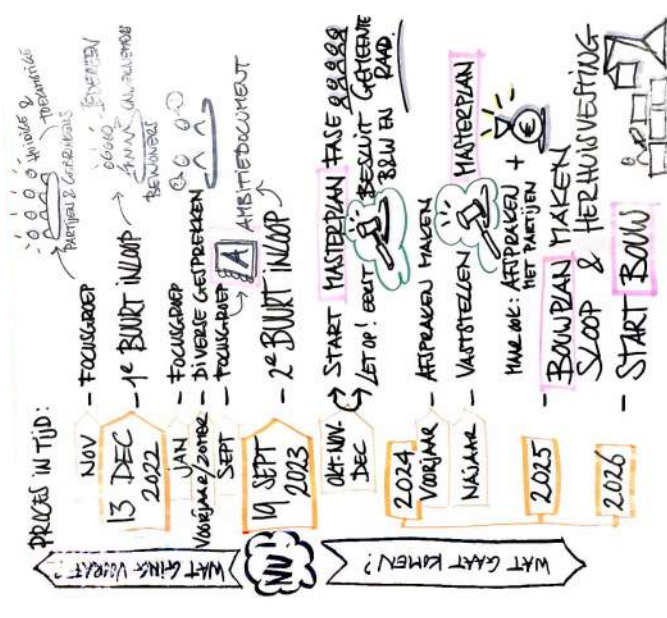 PROCES IN TIJD:
WAT GING VOORAF?
NU
WAT GAAT KOMEN?
NOV - FOCUSGROEP
HUIDIGE & TOEKOMSTIGE
PARTIJEN & GEBRUIKERS
13 DEC 2022 - 1e BUURT INLOOP
IEDEREEN
OMWONENDEN
BEWONERS
JAN - FOCUSGROEP
VOORJAAR/ZOMER - DIVERSE GESPREKKEN
SEPT - FOCUSGROEP
A AMBITIEDOCUMENT
19 SEPT 2023 - 2e BUURT INLOOP
OKT-NOV-DEC
START MASTERPLAN FASE
LET OP! EERST BESLUIT GEMEENTE
B&W EN RAAD.
2024
VOORJAAR - AFSPRAKEN MAKEN
NAJAAR - VASTSTELLEN MASTERPLAN
MAAR OOK: AFSPRAKEN + €
MET PARTIJEN
2025 - BOUWPLAN MAKEN
SLOOP & HERHUISVESTING
2026 - START BOUW